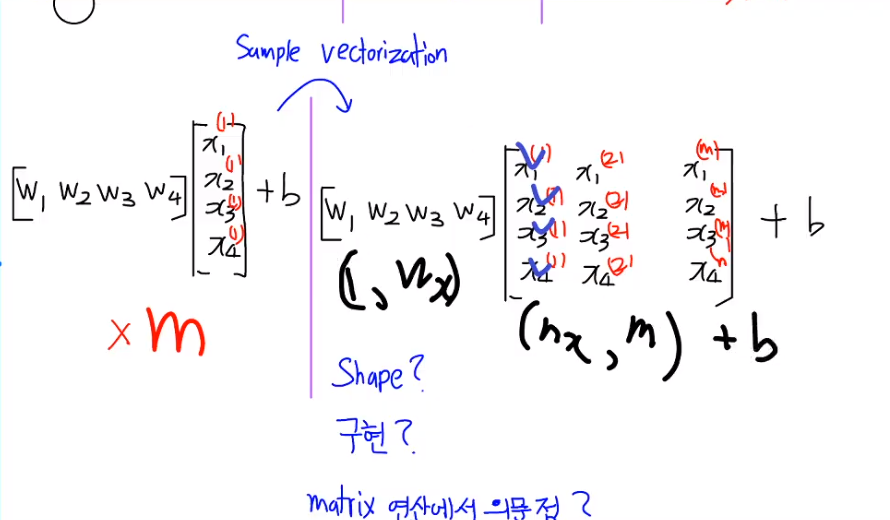 Sample vectorization
[W₁ W₂ W₃ W₄] [x₁⁽¹⁾ x₂⁽¹⁾ x₃⁽¹⁾ x₄⁽¹⁾] + b
× m
[W₁ W₂ W₃ W₄] [x₁⁽¹⁾ x₁⁽²⁾ x₁⁽ᵐ⁾
x₂⁽¹⁾ x₂⁽²⁾ x₂⁽ᵐ⁾
x₃⁽¹⁾ x₃⁽²⁾ x₃⁽ᵐ⁾
x₄⁽¹⁾ x₄⁽²⁾ x₄⁽ᵐ⁾] + b
(1, nₓ) (nₓ, m) + b
Shape?
구현?
matrix 연산에서 의문점?